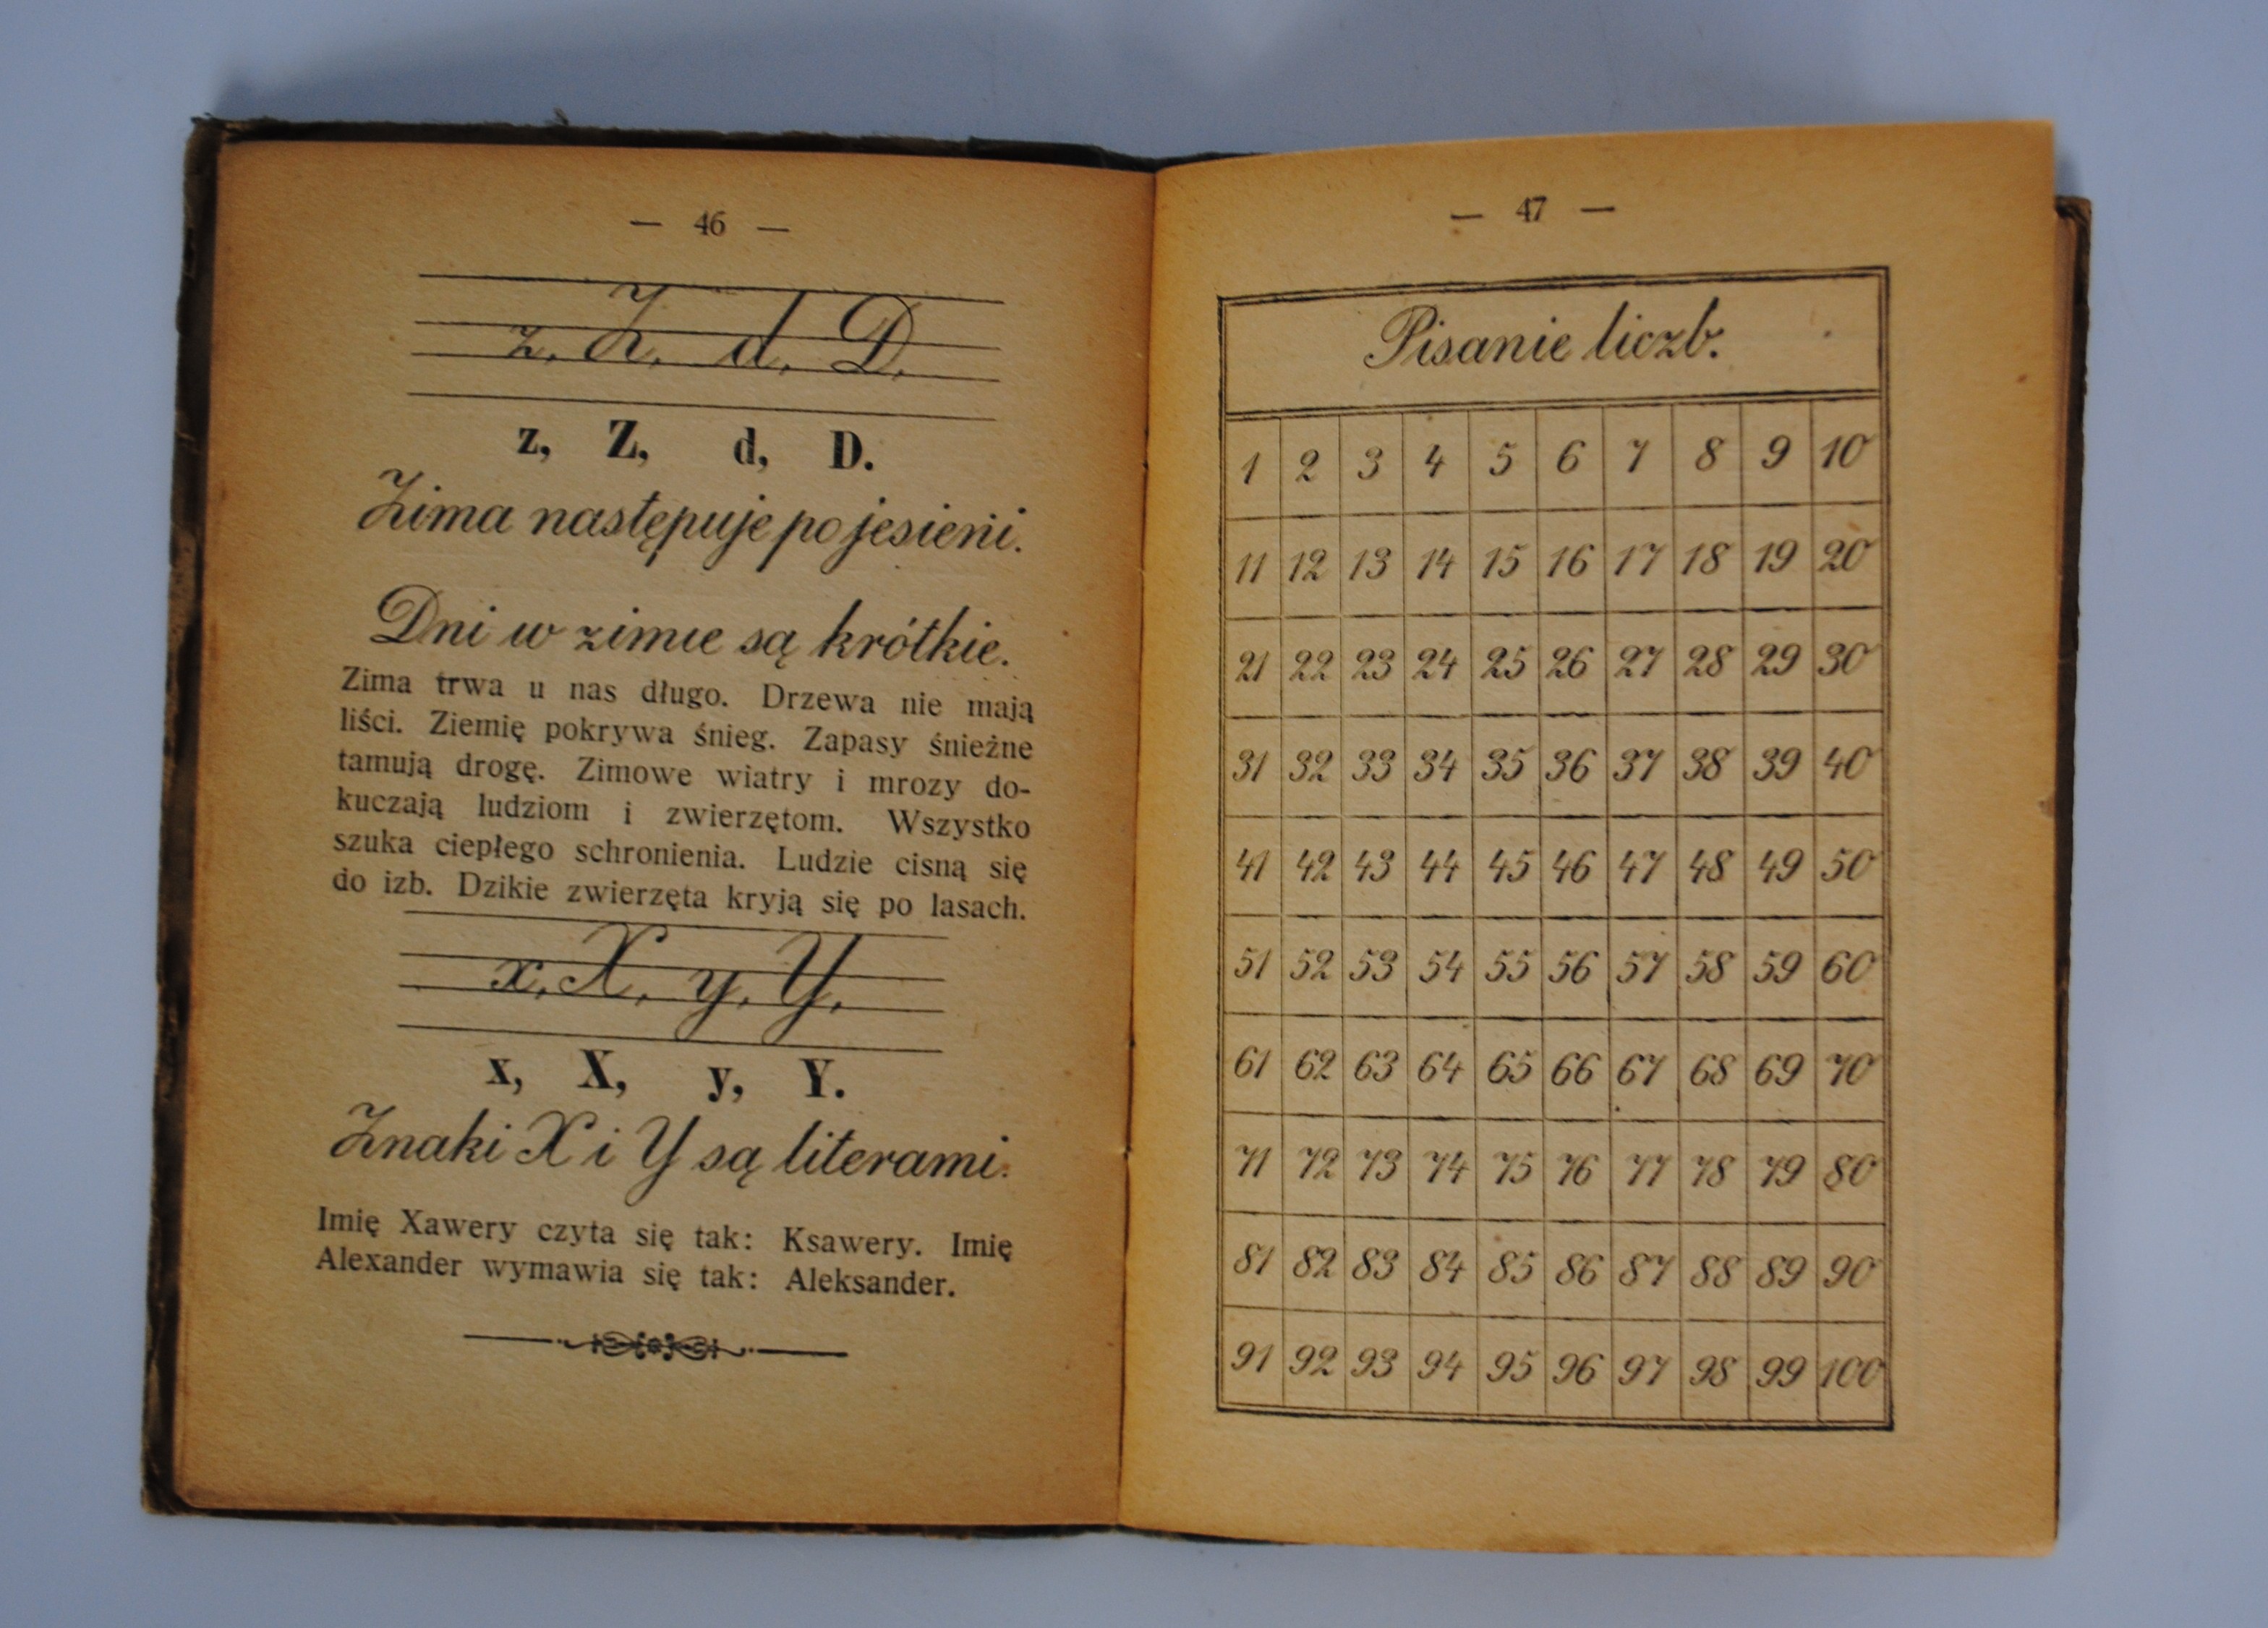 — 46 —
z, Z, d, D.
z, Z, d, D.
Zima następuje po jesieni.
Dni w zimie są krótkie.
Zima trwa u nas długo. Drzewa nie mają
liści. Ziemię pokrywa śnieg. Zapasy śnieżne
tamują drogę. Zimowe wiatry i mrozy do-
kuczają ludziom i zwierzętom. Wszystko
szuka ciepłego schronienia. Ludzie cisną się
do izb. Dzikie zwierzęta kryją się po lasach.
x, X, y, Y,
x, X, y, Y.
Znaki X i Y są literami.
Imię Xawery czyta się tak: Ksawery. Imię
Alexander wymawia się tak: Aleksander.
— 47 —
Pisanie liczb.
1 2 3 4 5 6 7 8 9 10
11 12 13 14 15 16 17 18 19 20
21 22 23 24 25 26 27 28 29 30
31 32 33 34 35 36 37 38 39 40
41 42 43 44 45 46 47 48 49 50
51 52 53 54 55 56 57 58 59 60
61 62 63 64 65 66 67 68 69 70
71 72 73 74 75 76 77 78 79 80
81 82 83 84 85 86 87 88 89 90
91 92 93 94 95 96 97 98 99 100